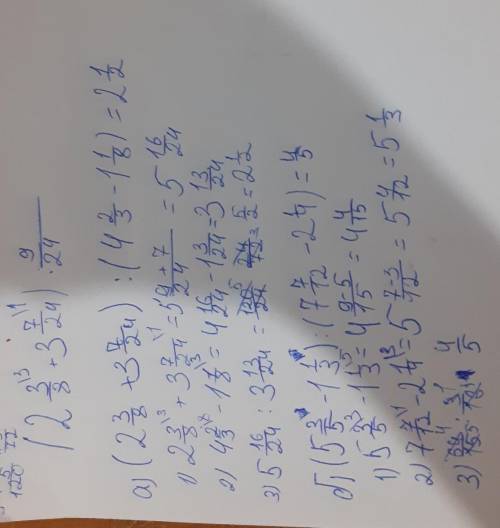 (2 3/8\3 + 3 7/24\1) · 9/24
а) (2 3/8 + 3 7/24) : (4 2/3 - 1 1/8) = 2 1/2
1) 2 3/8\3 + 3 7/24\1 = 5 9+7/24 = 5 16/24
2) 4 2/3\8 - 1 1/8\3 = 4 16/24 - 1 3/24 = 3 13/24
3) 5 16/24 : 3 13/24 = = 5/2 = 2 1/2
б) (5 3/5 - 1 1/3) : (7 7/12 - 2 1/4) = 4/5
1) 5 3/5\3 - 1 1/3\5 = 4 9-5/15 = 4 4/15
2) 7 7/12\1 - 2 1/4\3 = 5 7-3/12 = 5 4/12 = 5 1/3
3) 4/5